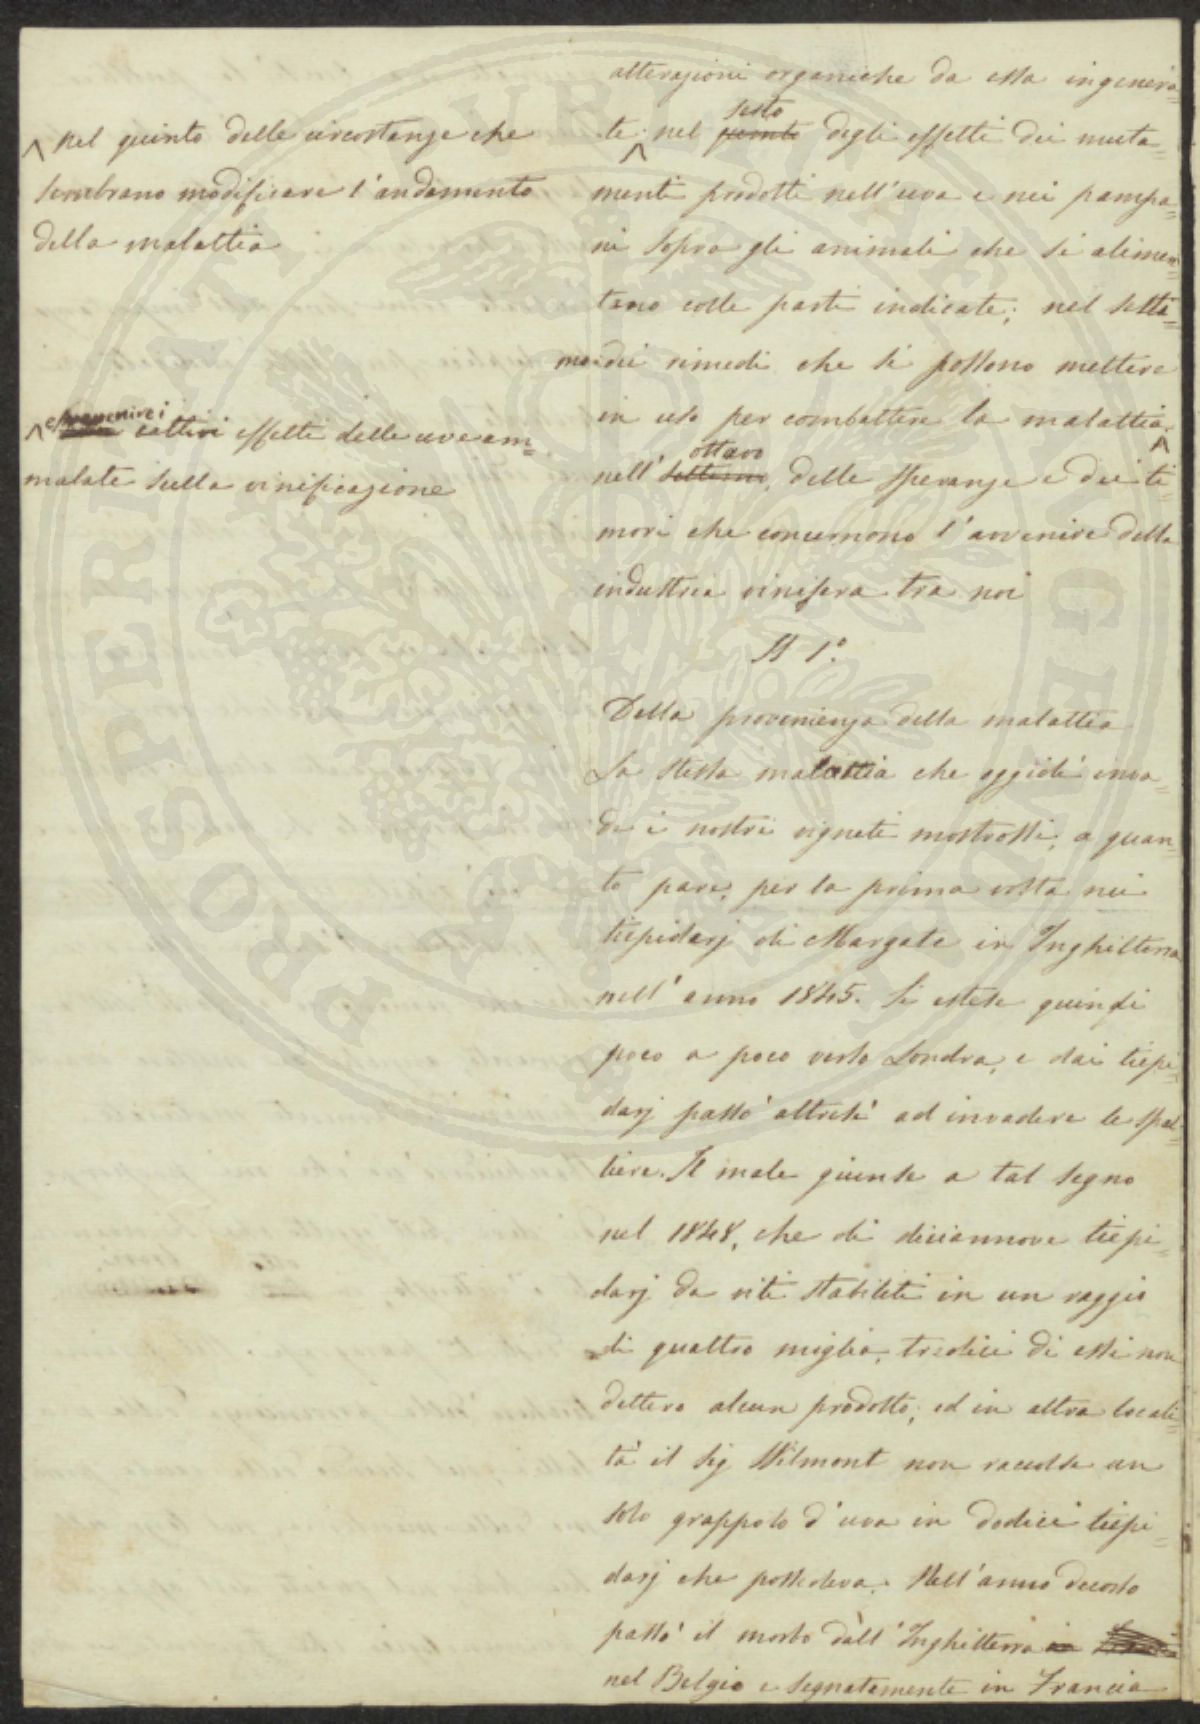 ^ nel quinto delle circostanze che
sembrano modificare l'andamento
della malattia
^ e prevenire i cattivi effetti delle uve am=
malate sulla vinificazione
alterazioni organiche da essa ingenera=
te; ^ nel quinto sesto degli effetti dei muta=
menti prodotti nell'uva e nei pampa=
ni sopra gli animali che si alimen=
tano colle parti indicate; nel setti=
mo dei rimedi che si possono mettere
in uso per combattere la malattia, ^
nell' settimo ottavo, delle speranze e dei ti=
mori che concernono l'avvenire della
industria vinifera tra noi
§ 1.º
Della provenienza della malattia
La stessa malattia che oggidì inva=
de i nostri vigneti mostrossi, a quan=
to pare, per la prima volta nei
tiepidarj di Margate in Inghilterra
nell'anno 1845. Si estese quindi
poco a poco verso Londra, e dai tiepi=
darj passò altresì ad invadere le spal=
liere. Il male giunse a tal segno
nel 1848, che di diciannove tiepi=
darj da viti stabiliti in un raggio
di quattro miglia, tredici di essi non
dettero alcun prodotto; ed in altra locali=
tà il sig Wilmont non raccolse un
solo grappolo d'uva in dodici tiepi=
darj che possedeva. Nell'anno decorso
passò il morbo dall'Inghilterra in
nel Belgio e segnatamente in Francia
PROSPERITATI PUBLICAE AUGENDAE